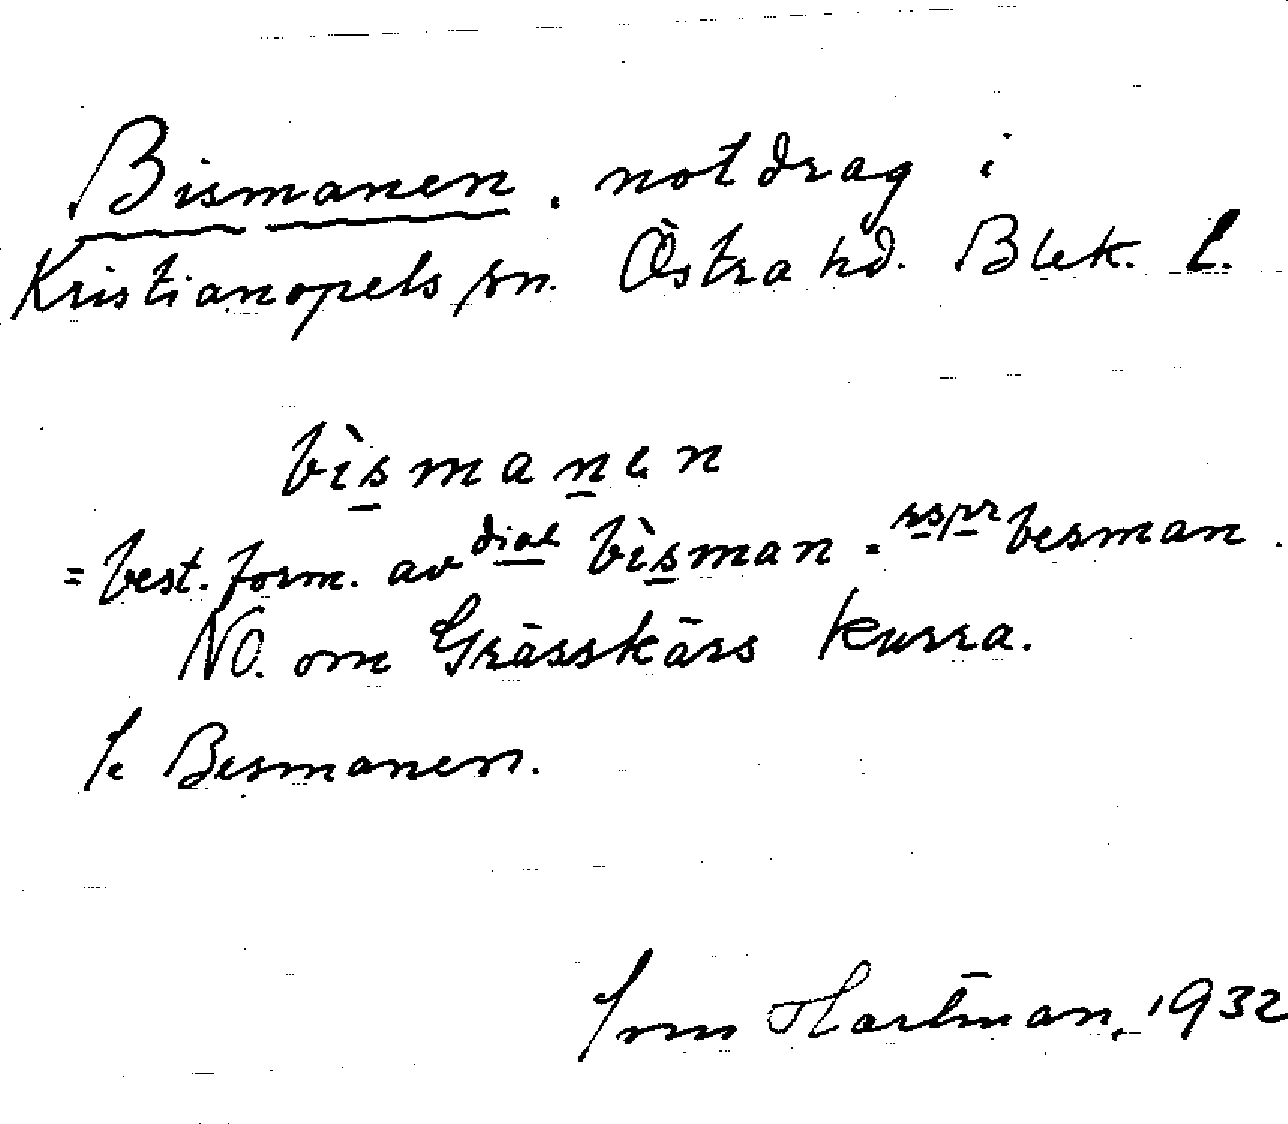 Bismanen. notdrag i
Kristianopels sn. Östra hd. Blek. l.
bìsmanen
= best. form. av dial bìsman = rspr besman.
NO. om Grässkärs Kurra.
/. Besmanen.
Hartman, 1932